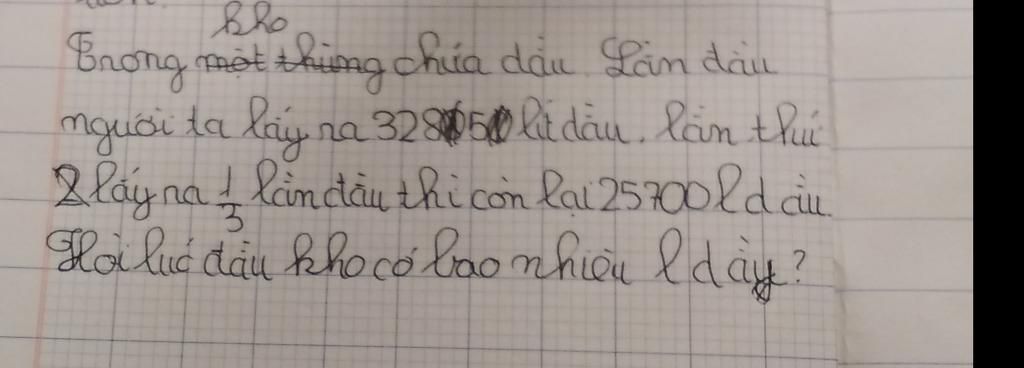 kho
Trong một thùng chứa dầu. Lần đầu
người ta lấy ra lít dầu. lần thứ
2 lấy ra 1/3 lần đầu thì còn lại 25700 l dầu.
Hỏi lúc đầu kho có bao nhiêu l dầy?